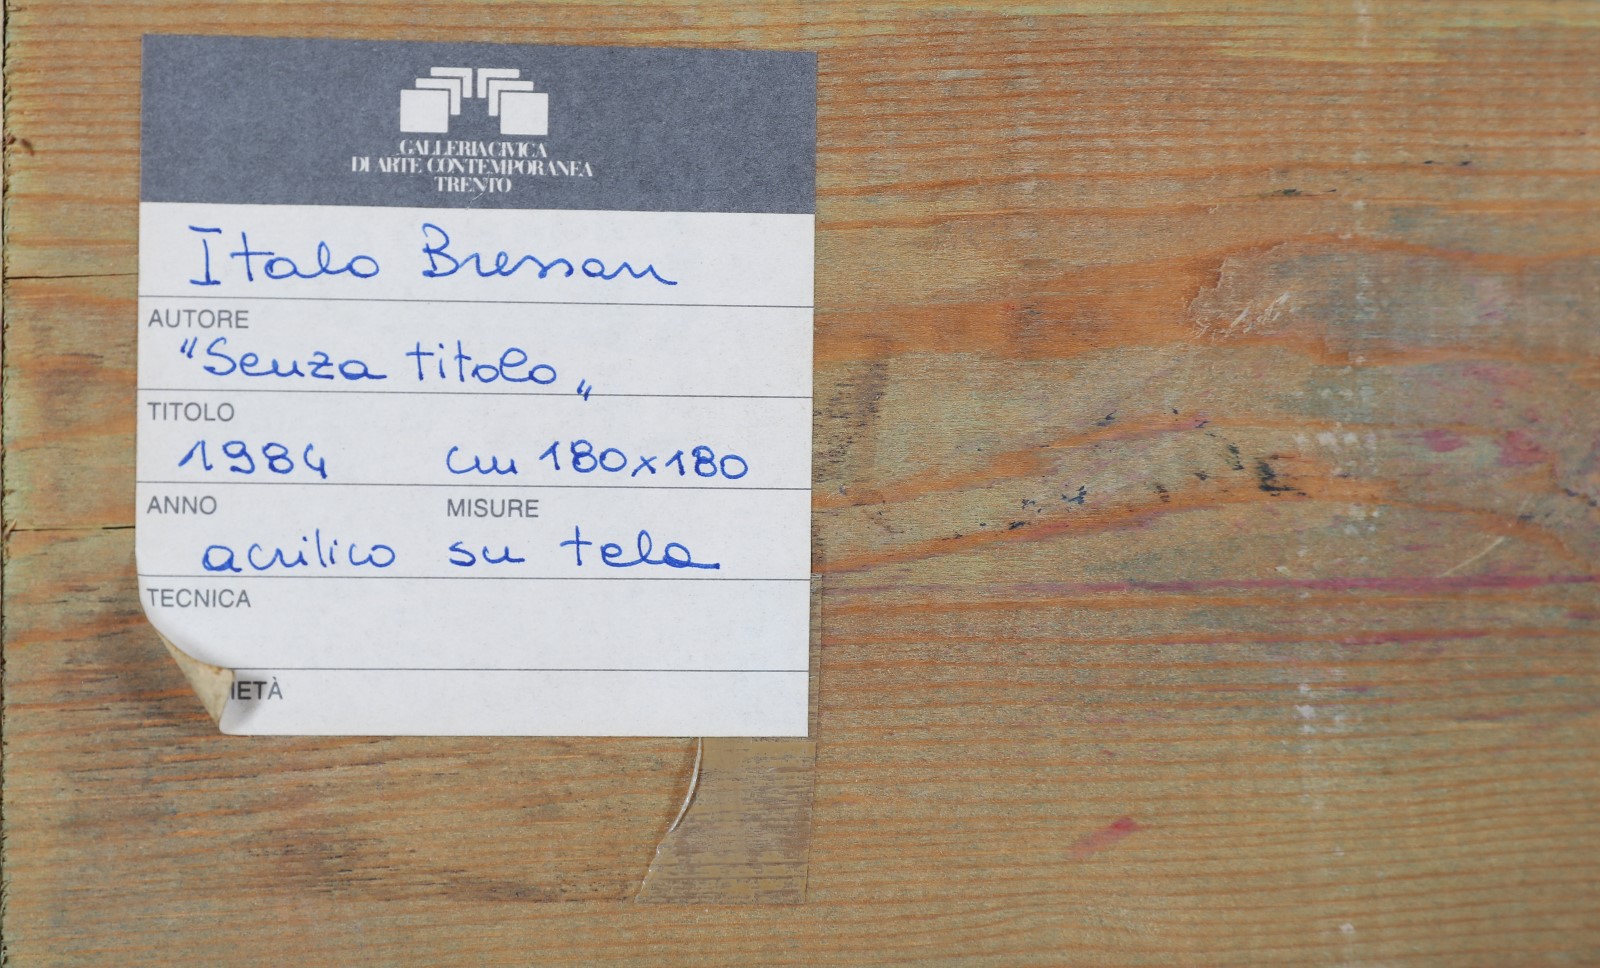 GALLERIA CIVICA
DI ARTE CONTEMPORANEA
TRENTO
Italo Bressan
AUTORE
"Senza titolo„
TITOLO
1984 cm 180x180
ANNO MISURE
acrilico su tela
TECNICA
IETÀ